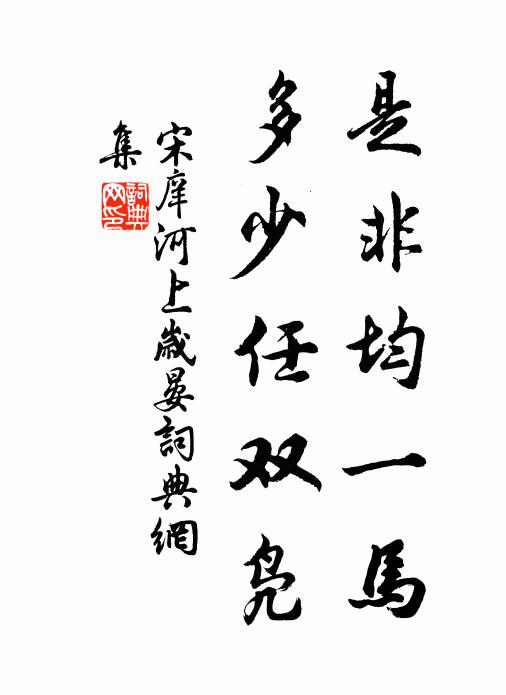 是非均一馬
多少任双凫
宋庠河上歲晏詞典網
集
詞典
网印